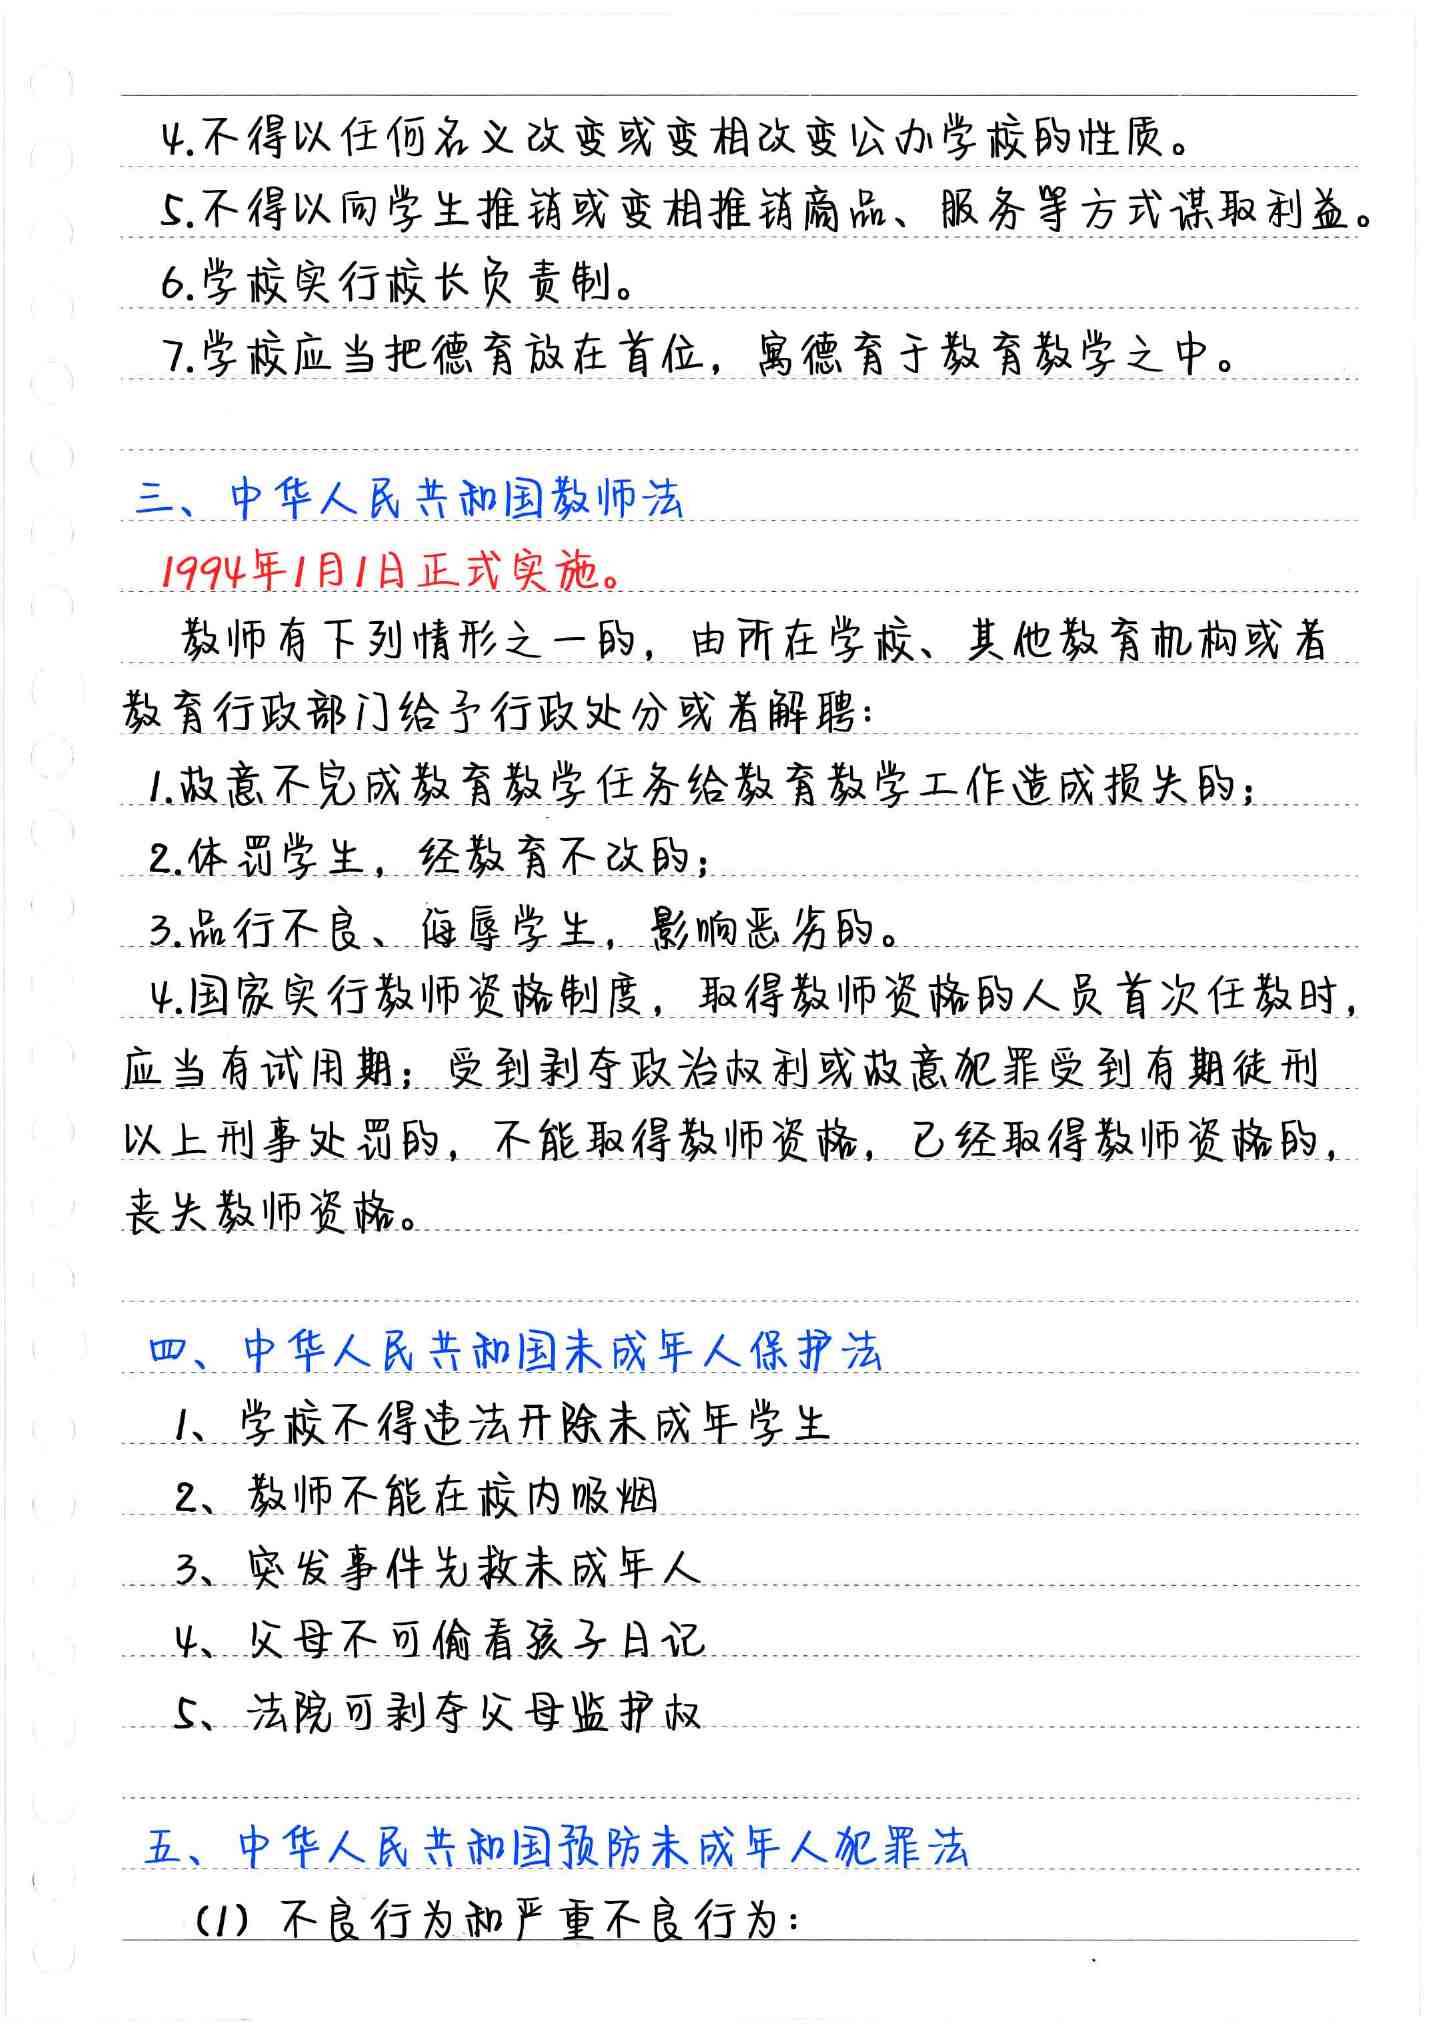 4.不得以任何名义改变或变相改变公办学校的性质。
5.不得以向学生推销或变相推销商品、服务等方式谋取利益。
6.学校实行校长负责制。
7.学校应当把德育放在首位，寓德育于教育教学之中。
三、中华人民共和国教师法
1994年1月1日正式实施。
教师有下列情形之一的，由所在学校、其他教育机构或者
教育行政部门给予行政处分或者解聘：
1.故意不完成教育教学任务给教育教学工作造成损失的；
2.体罚学生，经教育不改的；
3.品行不良、侮辱学生，影响恶劣的。
4.国家实行教师资格制度，取得教师资格的人员首次任教时，
应当有试用期；受到剥夺政治权利或故意犯罪受到有期徒刑
以上刑事处罚的，不能取得教师资格，已经取得教师资格的，
丧失教师资格。
四、中华人民共和国未成年人保护法
1、学校不得违法开除未成年学生
2、教师不能在校内吸烟
3、突发事件先救未成年人
4、父母不可偷看孩子日记
5、法院可剥夺父母监护权
五、中华人民共和国预防未成年人犯罪法
（1）不良行为和严重不良行为：